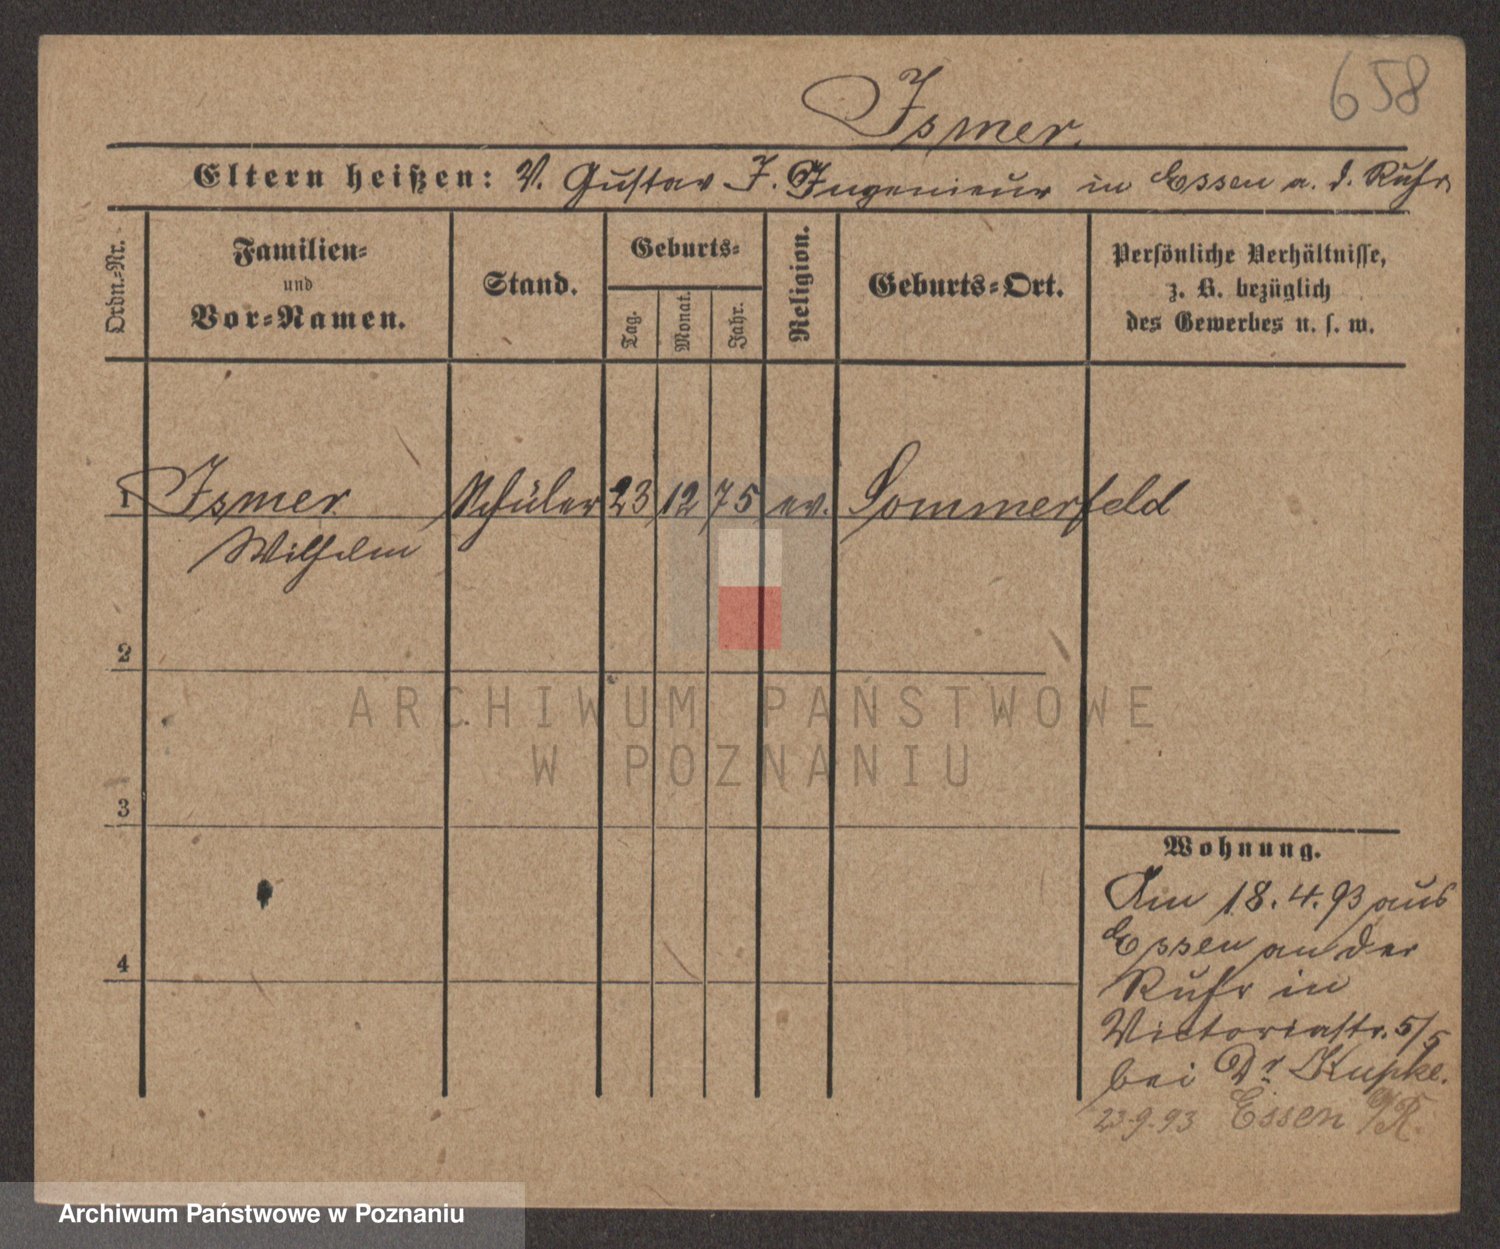 658
Ismer.
Eltern heißen: V. Gustav I. Ingenieur in Essen a. d. Ruhr
Ordn.-Nr.
Familien-
und
Vor-Namen.
Stand.
Geburts-
Tag.
Monat.
Jahr.
Religion.
Geburts-Ort.
Persönliche Verhältnisse,
z. B. bezüglich
des Gewerbes u. s. w.
1 Ismer Schüler 23 12 75 ev. Sommerfeld
Wilhelm
2
ARCHIWUM PAŃSTWOWE
W POZNANIU
3
Wohnung.
Am 18.4.93 aus
Essen an der
4
Ruhr in
Victoriastr. 5/5
bei Dr Kupke.
23.9.93 Essen a/R.
Archiwum Państwowe w Poznaniu